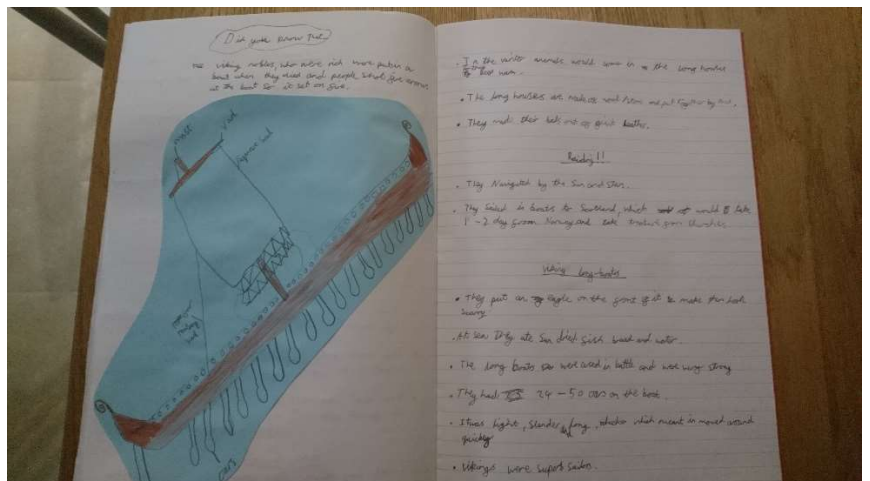 Did you know that
The viking nobles, who were rich were put in a
boat when they died and people shot fire arrows
at the boat so it set on fire.
mast
oars
In the winter animals would come in to the long houses
to keep warm.
The long houses are made of wood and put together by
They made their beds out of
Raiding!!
They Navigated by the Sun and stars.
They Sailed in boats to Scotland, which would take
1 - 2 day from Norway and take treasure from churches
Viking long-boats
They put an eagle on the front of it to make them look
scary
At sea They ate Sun dried fish bread and water.
The long boats were used in battle and were very strong
They had 24 - 50 oars on the boat.
It was light, slender long, which meant it moved around
quickly
Vikings were superb sailors.